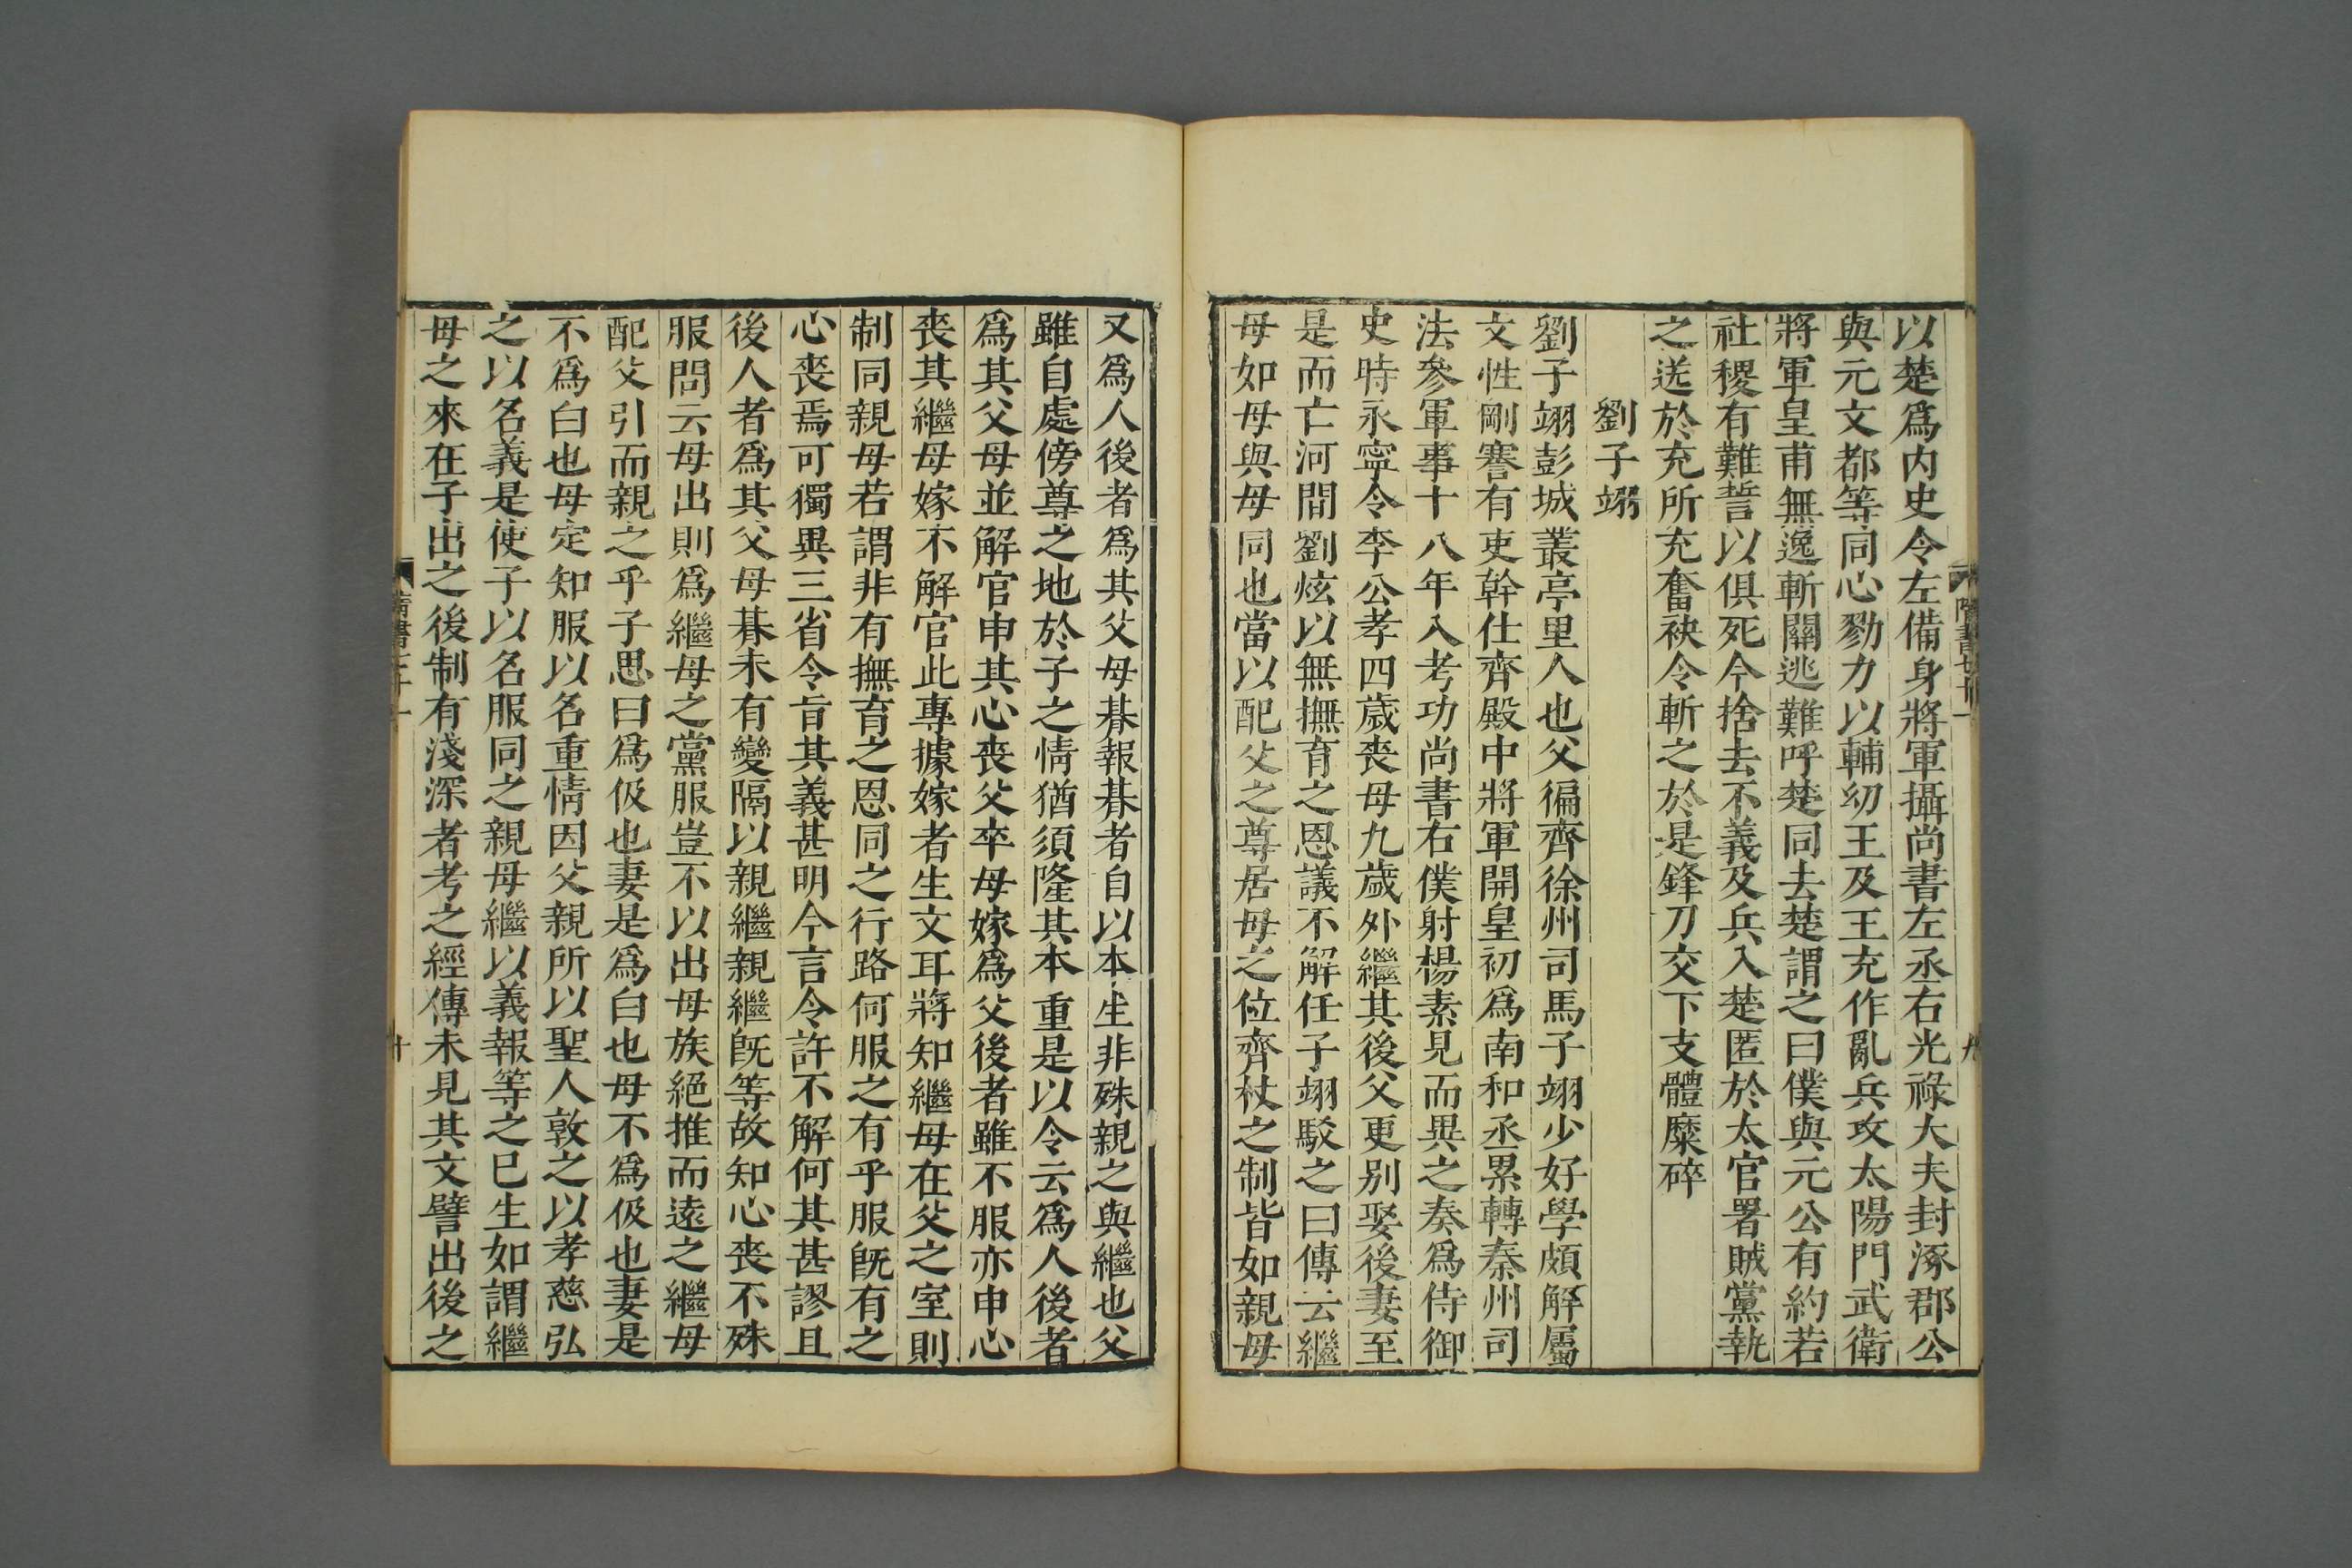 以楚爲内史令左備身將軍攝尚書左丞右光祿大夫封涿郡公
與元文都等同心勠力以輔幼王及王充作亂兵攻太陽門武衛
將軍皇甫無逸斬關逃難呼楚同去楚謂之曰僕與元公有約若
社稷有難誓以俱死今捨去不義及兵入楚匿於太官署賊黨執
之送於充所充奮袂令斬之於是鋒刀交下支體糜碎
劉子翊
劉子翊彭城叢亭里人也父徧齊徐州司馬子翊少好學頗解屬
文性剛謇有吏幹仕齊殿中將軍開皇初爲南和丞累轉秦州司
法參軍事十八年入考功尚書右僕射楊素見而異之奏爲侍御
史時永寧令李公孝四歲喪母九歲外繼其後父更別娶後妻至
是而亡河間劉炫以無撫育之恩議不解任子翊駁之曰傳云繼
母如母與母同也當以配父之尊居母之位齊杖之制皆如親母
又爲人後者爲其父母朞報朞者自以本生非殊親之與繼也父
雖自處傍尊之地於子之情猶須隆其本重是以令云爲人後者
爲其父母並解官申其心喪父卒母嫁爲父後者雖不服亦申心
喪其繼母嫁不解官此專據嫁者生文耳將知繼母在父之室則
制同親母若謂非有撫育之恩同之行路何服之有乎服旣有之
心喪焉可獨異三省令旨其義甚明今言令許不解何其甚謬且
後人者爲其父母朞未有變隔以親繼親繼旣等故知心喪不殊
服問云母出則爲繼母之黨服豈不以出母族絕推而遠之繼母
配父引而親之乎子思曰爲伋也妻是爲白也母不爲伋也妻是
不爲白也母定知服以名重情因父親所以聖人敦之以孝慈弘
之以名義是使子以名服同之親母繼以義報等之已生如謂繼
母之來在子出之後制有淺深者考之經傳未見其文譬出後之